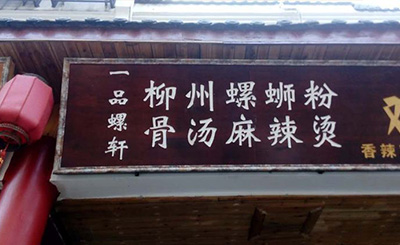 一品螺轩
柳州螺蛳粉
骨汤麻辣烫
香辣